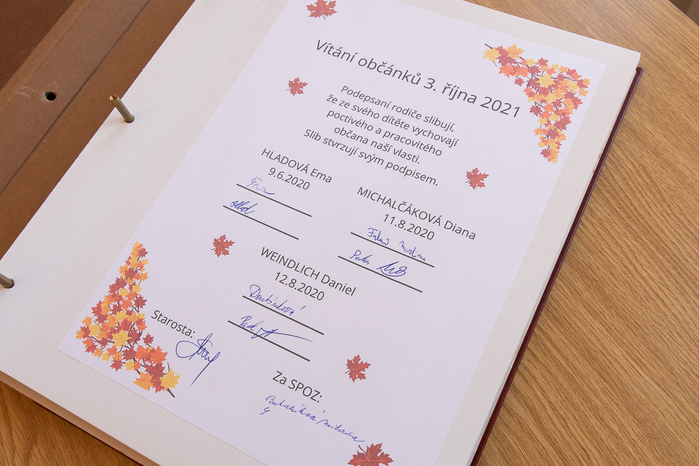 Vítání občánků 3. října 2021
Podepsaní rodiče slibují,
že ze svého dítěte vychovají
poctivého a pracovitého
občana naší vlasti.
Slib stvrzují svým podpisem.
HLADOVÁ Ema
9.6.2020
MICHALČÁKOVÁ Diana
11.8.2020
WEINDLICH Daniel
12.8.2020
Starosta:
Za SPOZ: